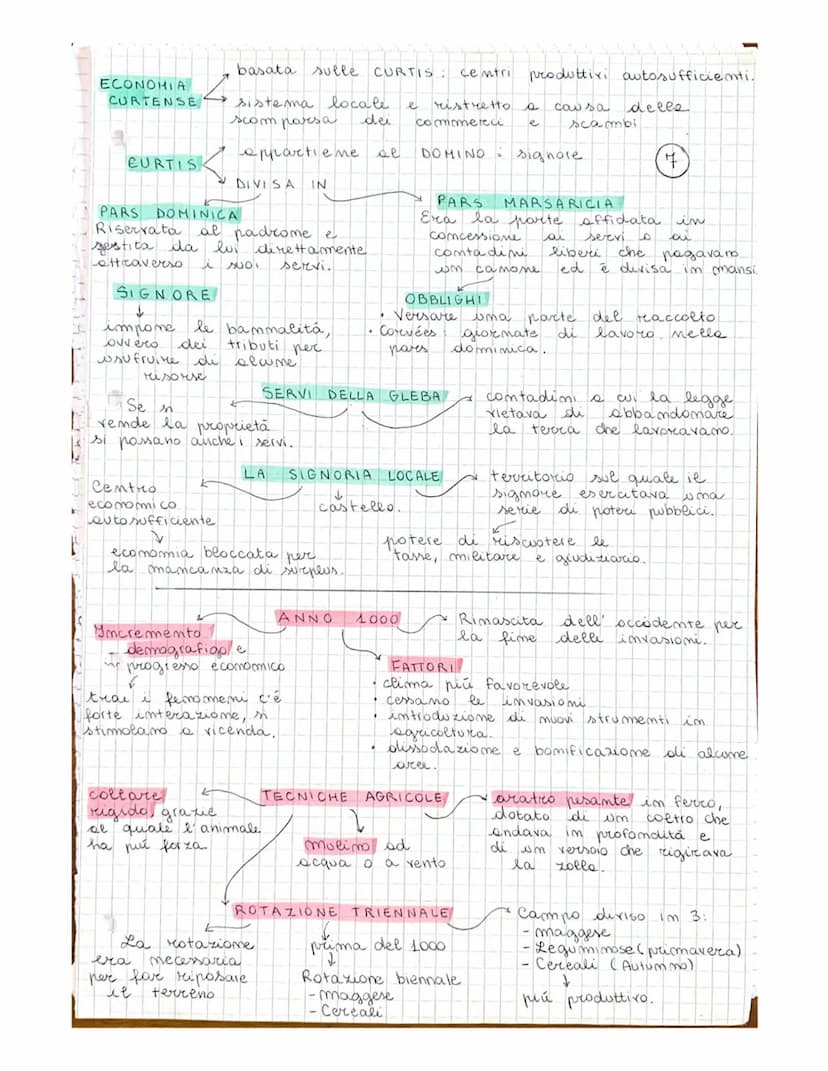 ECONOMIA CURTENSE
basata sulle CURTIS: centri produttivi autosufficienti.
sistema locale e ristretto a causa della
scomparsa dei commerci e scambi
CURTIS
appartiene al DOMINO: signore
7
DIVISA IN
PARS DOMINICA
Riservata al padrone e
gestita da lui direttamente
attraverso i suoi servi.
PARS MARSARICIA
Era la parte affidata in
concessione ai servi o ai
contadini liberi che pagavano
un canone ed è divisa in mansi
SIGNORE
impone le bannalità,
ovvero dei tributi per
usufruire di alcune
risorse
OBBLIGHI
• Versare una parte del raccolto
• Corvées: giornate di lavoro nella
pars dominica.
SERVI DELLA GLEBA
Se si
vende la proprietà
si passano anche i servi.
contadini a cui la legge
vietava di abbandonare
la terra che lavoravano.
LA SIGNORIA LOCALE
Centro
economico
autosufficiente
economia bloccata per
la mancanza di surplus.
castello.
territorio sul quale il
signore esercitava una
serie di poteri pubblici.
potere di riscuotere le
tasse, militare e giudiziario.
ANNO 1000
Incremento
demografigo e
progresso economico
trai i fenomeni c'è
forte interazione, si
stimolano a vicenda.
Rinascita dell' occidente per
la fine delle invasioni.
FATTORI
• clima più favorevole
• cessano le invasioni
• introduzione di nuovi strumenti in
agricoltura.
• dissodazione e bonificazione di alcune
aree.
TECNICHE AGRICOLE
collare
rigido, grazie
al quale l'animale
ha più forza
mulino ad
acqua o a vento
aratro pesante in ferro,
dotato di un coltro che
andava in profondità e
di un versoio che rigirava
la zolla.
ROTAZIONE TRIENNALE
La rotazione
era necessaria
per far riposare
il terreno
prima del 1000
Rotazione biennale
- maggese
- Cereali
Campo diviso in 3:
- maggese
- Leguminose (primavera)
- Cereali (Autunno)
più produttivo.